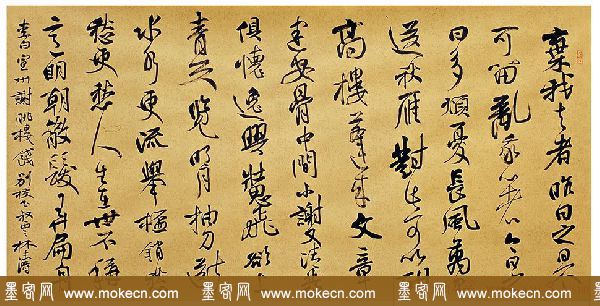 棄我去者昨日之日
可留亂我心者今日
日多煩憂長風萬
送秋雁對此可以酣
高樓蓬萊文章
建安骨中間小謝又清
俱懷逸興壯思飛欲
青天覽明月抽刀斷
水水更流舉杯銷愁
愁更愁人生在世不稱
意明朝散髮弄扁舟
李白宣州謝朓樓餞別校書叔雲
墨客网 www.mokecn.com 墨客网 www.mokecn.com 墨客网 www.mokecn.com 墨客网